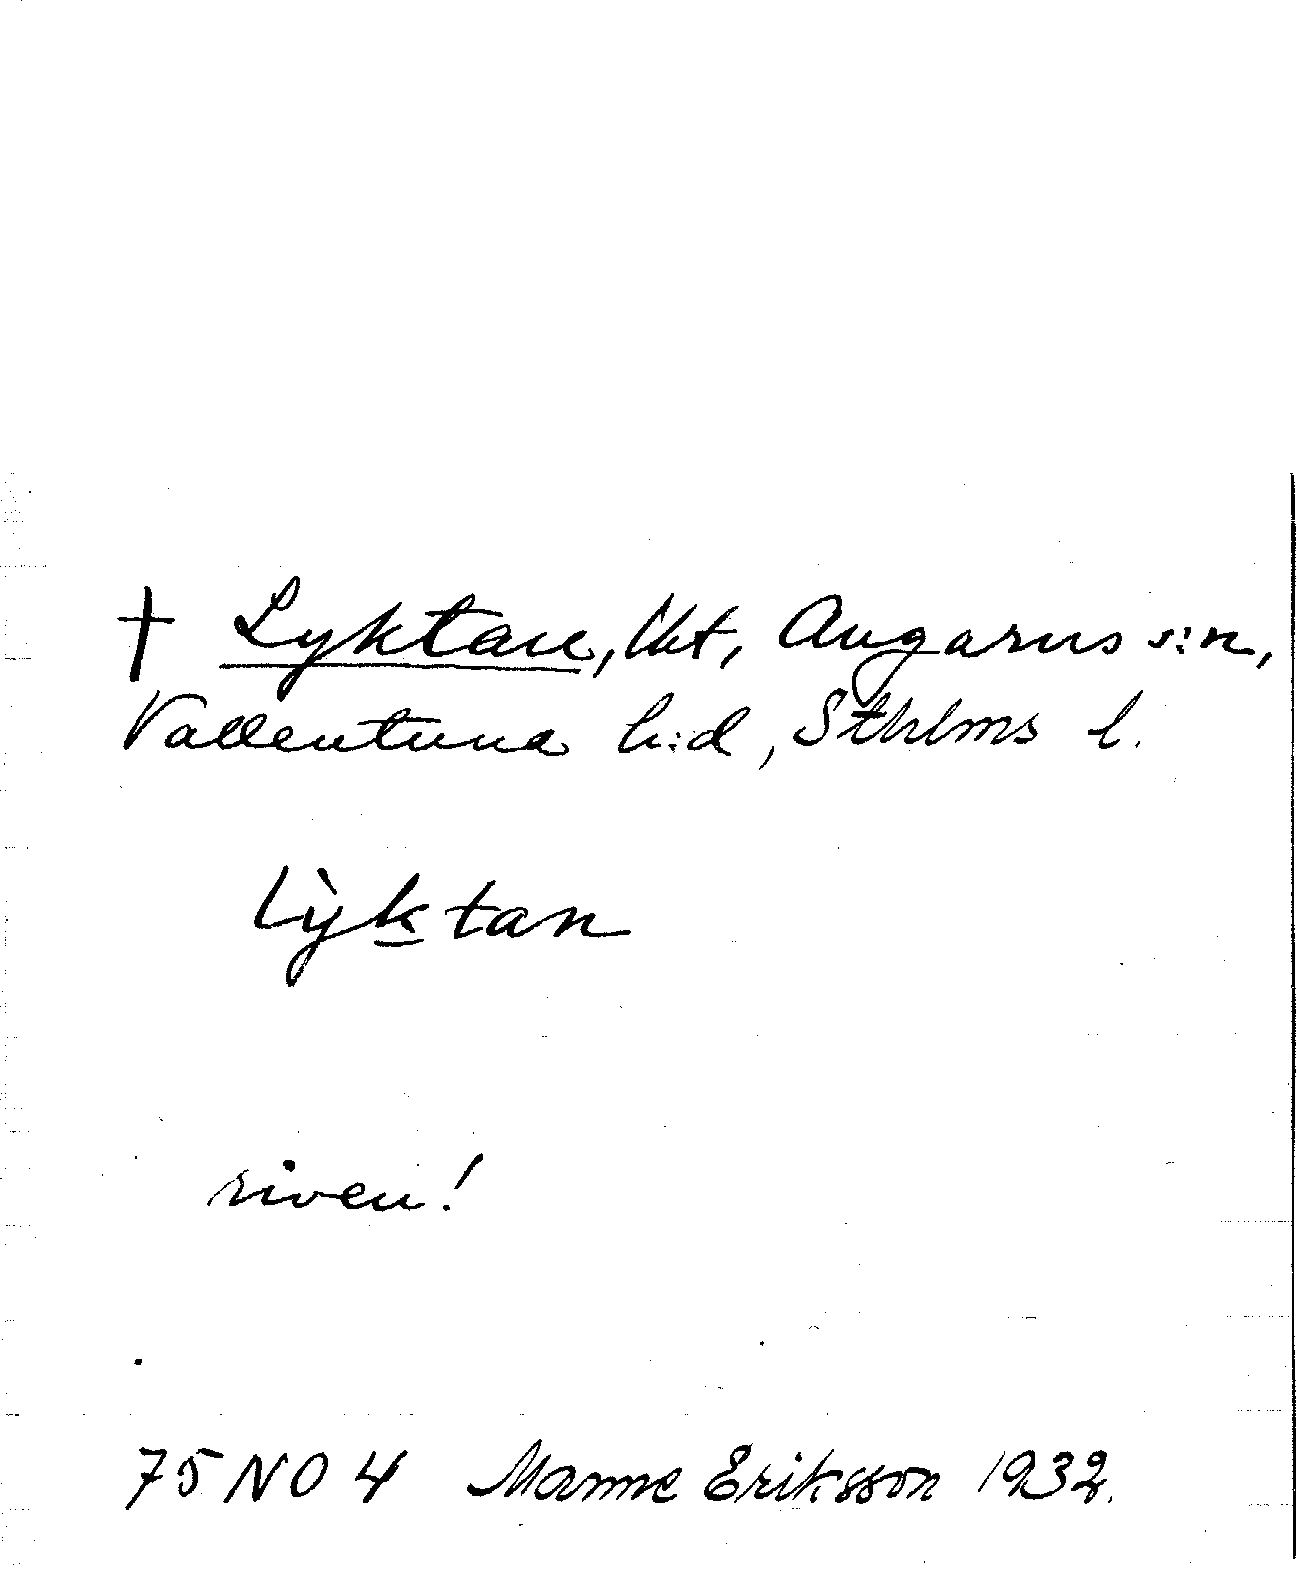 † Lyktan, lht, Angarns s:n,
Vallentuna h:d, Sthlms l.
Lỳktan
riven!
75 NO 4 Manne Eriksson 1932.